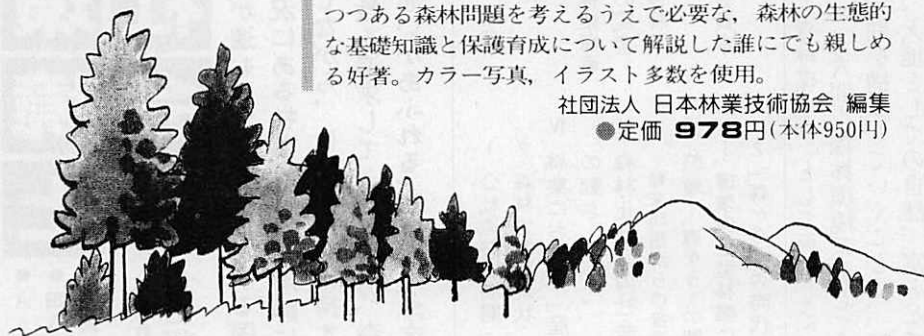 つつある森林問題を考えるうえで必要な，森林の生態的
な基礎知識と保護育成について解説した誰にでも親しめ
る好著。カラー写真，イラスト多数を使用。
社団法人 日本林業技術協会 編集
●定価 978円(本体950円)